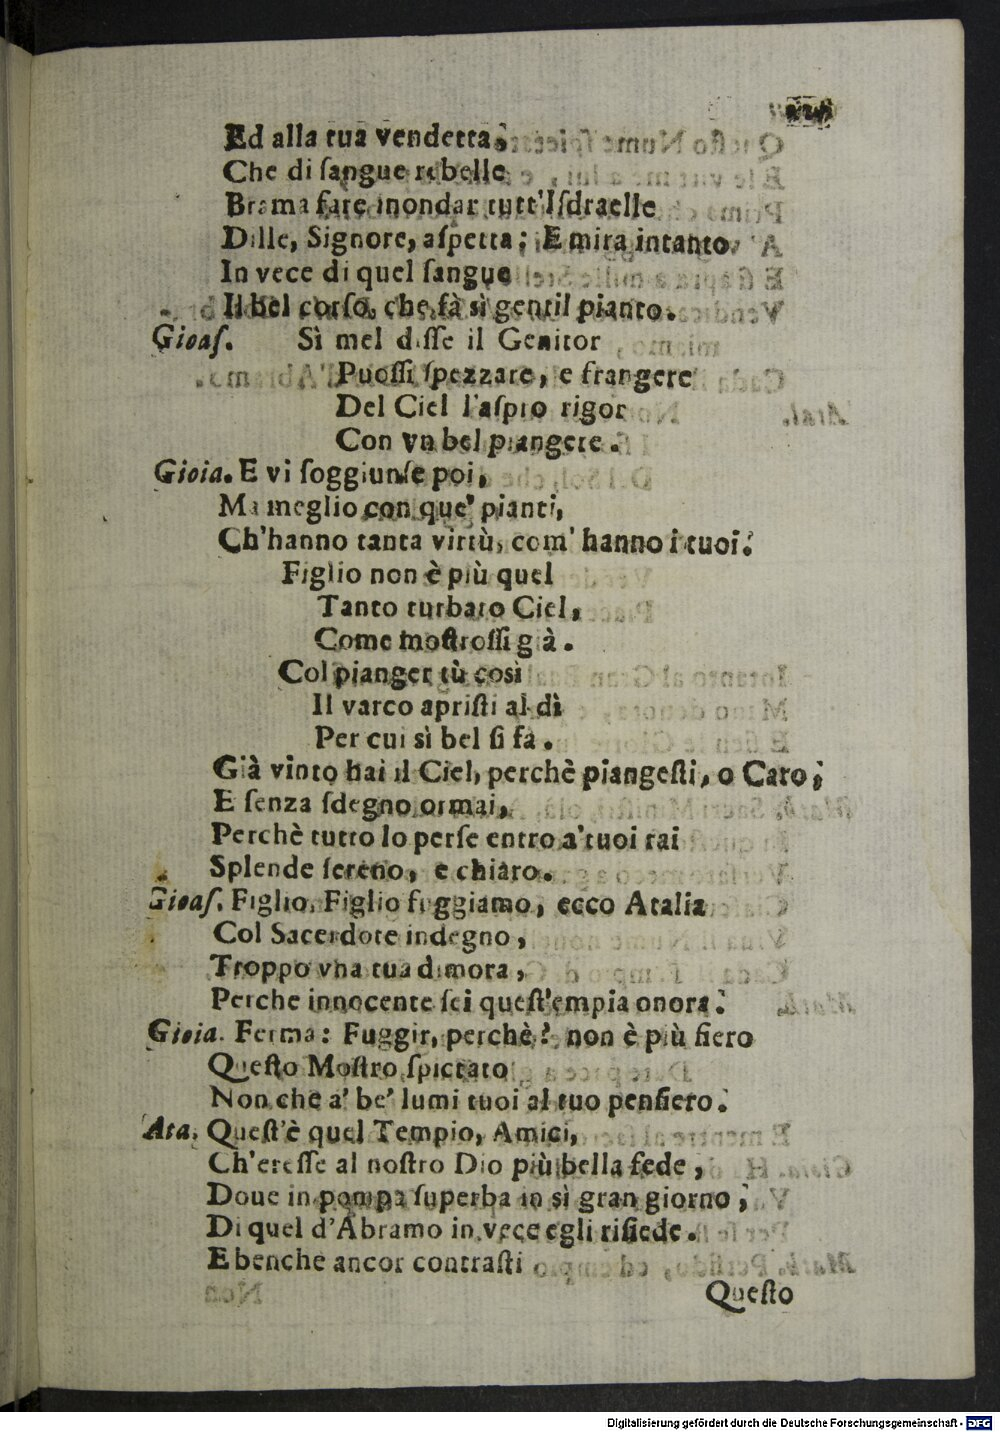 Ed alla tua vendetta;
Che di ſangue rebelle
Brama fare inondar tutt'Iſdraelle
Dille, Signore, aſpetta; E mira intanto
In vece di quel ſangue
Il bel corſo, che fà sì gentil pianto.
Gioaſ. Sì mel diſſe il Genitor
Puoſſi ſpezzare, e frangere
Del Ciel l'aſpro rigor
Con vn bel piangere.
Gioia. E vi ſoggiunſe poi,
Ma meglio con que' pianti,
Ch'hanno tanta virtù, com' hanno i tuoi.
Figlio non è più quel
Tanto turbato Ciel,
Come moſtroſſi già.
Col pianger tù così
Il varco apriſti al dì
Per cui sì bel ſi fà.
Già vinto hai il Ciel, perchè piangeſti, o Caro;
E ſenza ſdegno ormai,
Perchè tutto lo perſe entro a' tuoi rai
Splende ſereno, e chiaro.
Gioaſ. Figlio, Figlio fuggiamo, ecco Atalia
Col Sacerdote indegno,
Troppo vna tua dimora,
Perche innocente ſei queſt'empia onora.
Gioia. Ferma: Fuggir, perchè? non è più fiero
Queſto Moſtro ſpietato
Non che a' be' lumi tuoi al tuo penſiero.
Ata. Queſt'è quel Tempio, Amici,
Ch'ereſſe al noſtro Dio più bella fede,
Doue in pompa ſuperba in sì gran giorno;
Di quel d'Abramo in vece egli riſiede.
E benche ancor contraſti
Queſto
Digitalisierung gefördert durch die Deutsche Forschungsgemeinschaft - DFG